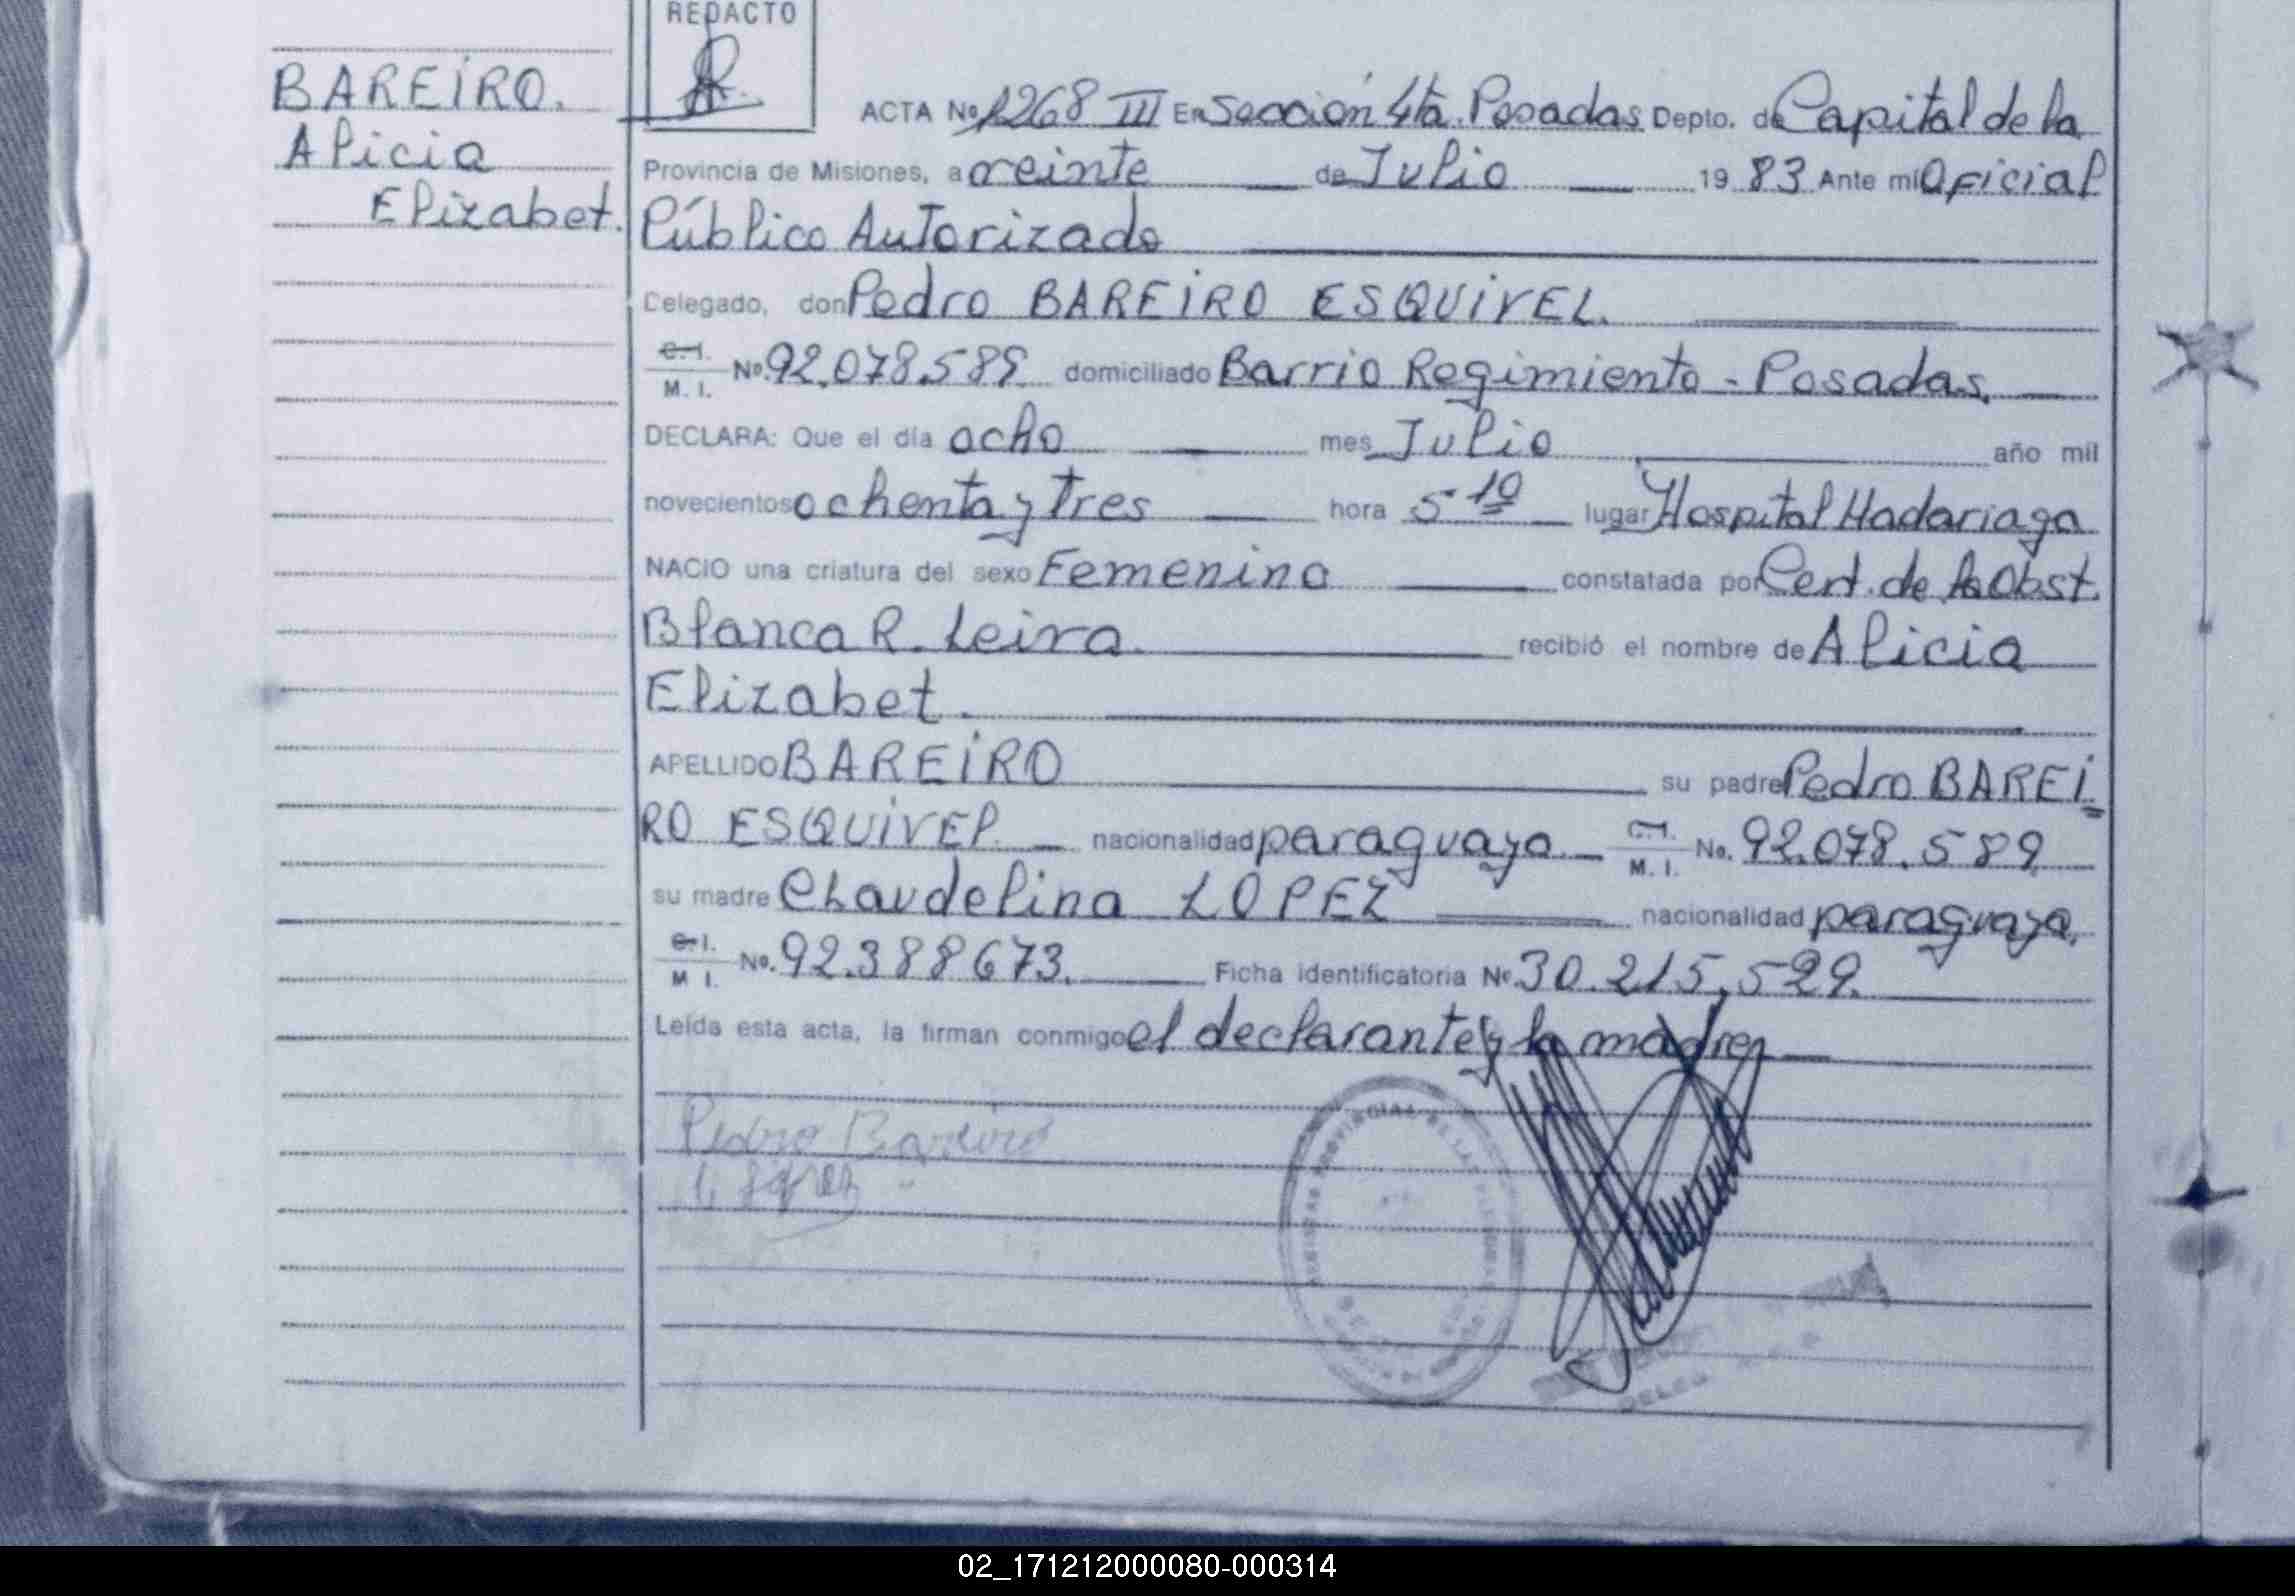 REDACTO
BAREIRO.
Alicia
Elizabet.
ACTA No 1268 III En Sección 4ta. Posadas Depto. de Capital de la
Provincia de Misiones, a veinte de Julio 19 83 Ante mi Oficial
Público Autorizado
Delegado, don Pedro BAREIRO ESQUIVEL.
C.I. M. I. No. 92.078.589 domiciliado Barrio Regimiento - Posadas.
DECLARA: Que el día ocho mes Julio año mil
novecientos ochenta y Tres hora 5 10 lugar Hospital Madariaga
NACIO una criatura del sexo Femenino constatada por Cert. de la Obst.
Blanca R. Leiva. recibió el nombre de Alicia
Elizabet.
APELLIDO BAREIRO su padre Pedro BAREI
RO ESQUIVEL nacionalidad paraguaya C.I. M. I. No. 92.078.589
su madre Claudelina LOPEZ nacionalidad paraguaya,
C.I. M I. No. 92.388673. Ficha identificatoria No. 30.215.529.
Leída esta acta, la firman conmigo el declarante y la madre
Pedro Bareiro
02_171212000080-000314